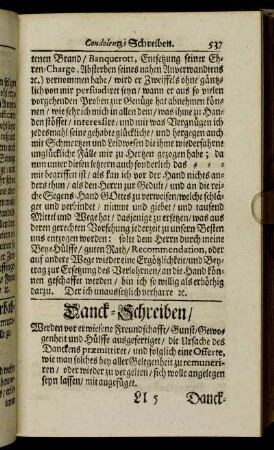 Condolentz-Schreiben. 537
tenen Brand/ Banquerott, Entsetzung seiner Eh-
ren-Charge, Absterben seines nahen Anverwandtens
ꝛc.) vernommen habe/ wird er Zweiffels ohne gäntz-
lich von mir persuadirt seyn/ wann er aus so vielen
vorgehenden Proben zur Genüge hat abnehmen kön-
nen/ wie sehr ich mich in allen dem/ was ihme zu Han-
den stösset/ interessire/ und mit was Vergnügen ich
jedesmal seine gehabte glückliche/ und hergegen auch
mit Schmertzen und Leidwesen die ihme wiederfahrne
unglückliche Fälle mir zu Hertzen gezogen habe; da
nun unter diesen letztern auch sonderlich das
mit begriffen ist/ als kan ich vor der Hand nichts an-
ders thun/ als den Herrn zur Gedult/ und an die rei-
che Segens-Hand GOttes zu verweisen/ welche schlä-
get und verbindet/ nimmt und giebet/ und tausend
Mittel und Wege hat/ dasjenige zu ersetzen/ was aus
deren gerechten Vorsehung jederzeit zu unsern Besten
uns entzogen worden: solte dem Herrn durch meine
Bey-Hülffe/ guten Rath/ Recommendation, oder
auf andere Wege wieder eine Ergötzlichkeit/ und Bey-
trag zur Ersetzung des Verlohrnen/ an die Hand kön-
nen geschaffet werden/ bin ich so willig als erböthig
darzu. Der ich unausetzlich verharre ꝛc.
Danck-Schreiben/
Werden vor erwiesene Freundschafft/ Gunst/ Gewo-
genheit und Hülffe ausgefertiget/ die Ursache des
Danckens præmittiret/ und folglich eine Offerte,
wie man solches bey aller Gelegenheit zu remuneri-
ren/ oder wieder zu vergelten/ sich wolle angelegen
seyn lassen/ mit angefüget.
Ll 5 Danck-